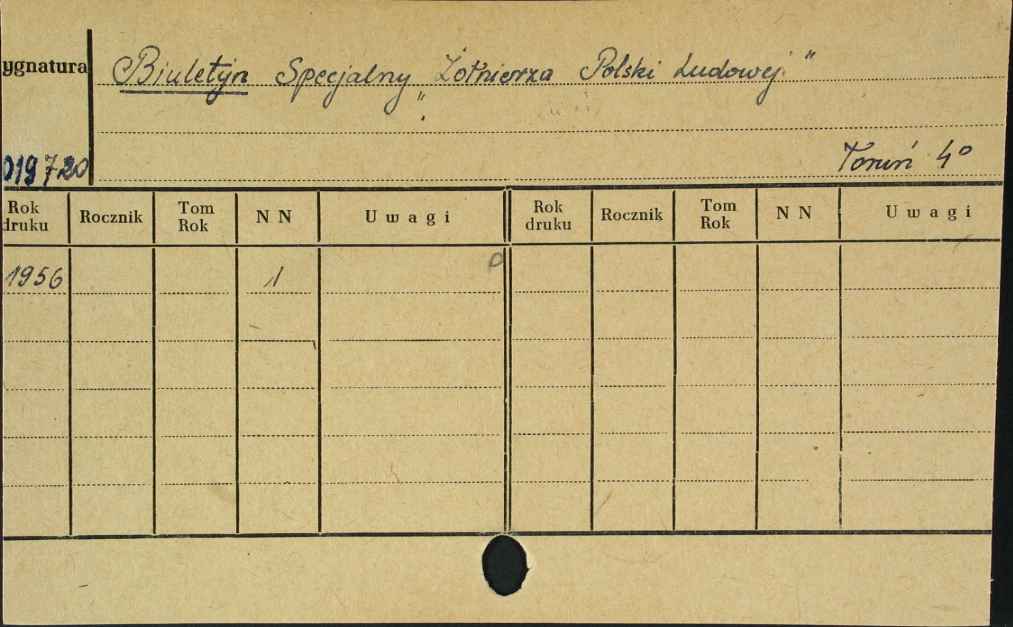 ygnatura
Biuletyn Specjalny „Żołnierza Polski Ludowej"
019720
Toruń 4°
Rok druku Rocznik Tom Rok N N Uwagi Rok druku Rocznik Tom Rok N N Uwagi
1956 1